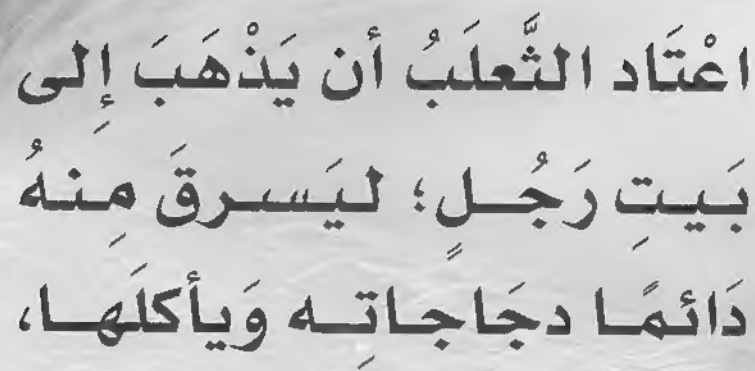 اعْتَاد الثَّعلَبُ أن يَذْهَبَ إِلى
بَيتِ رَجُلٍ؛ ليَسرقَ مِنهُ
دَائمًا دجَاجاتِه وَيأكلَها،